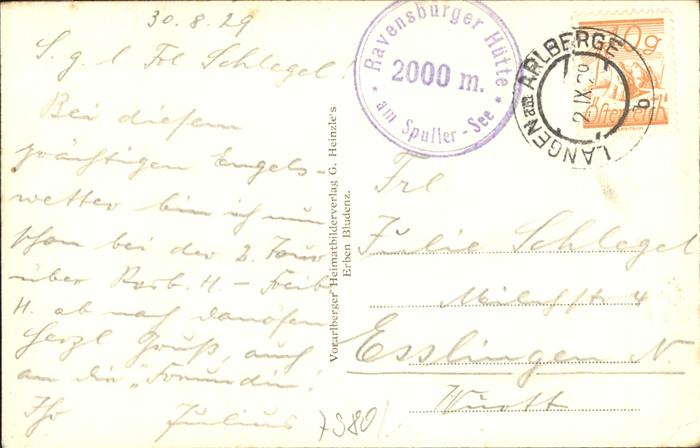 30.8.29
S. g. l. Frl Schlegel!
Bei diesem
prächtigen Engels-
wetter bin ich nun
schon bei der 2. Tour
über Rvsb. H - Freib
H. ab nach Danöfen
herzl Gruß, auch
an die "Freundin"!
Ihr Julius
7580
Vorarlberger Heimatbilderverlag G. Heinzle's
Erben Bludenz.
* Ravensburger Hütte *
2000 m.
am Spuller-See
LANGEN am ARLBERGE
2 IX 29
b
10g
Österreich
Frl.
Julie Schlegel
4
Esslingen N.
Württ